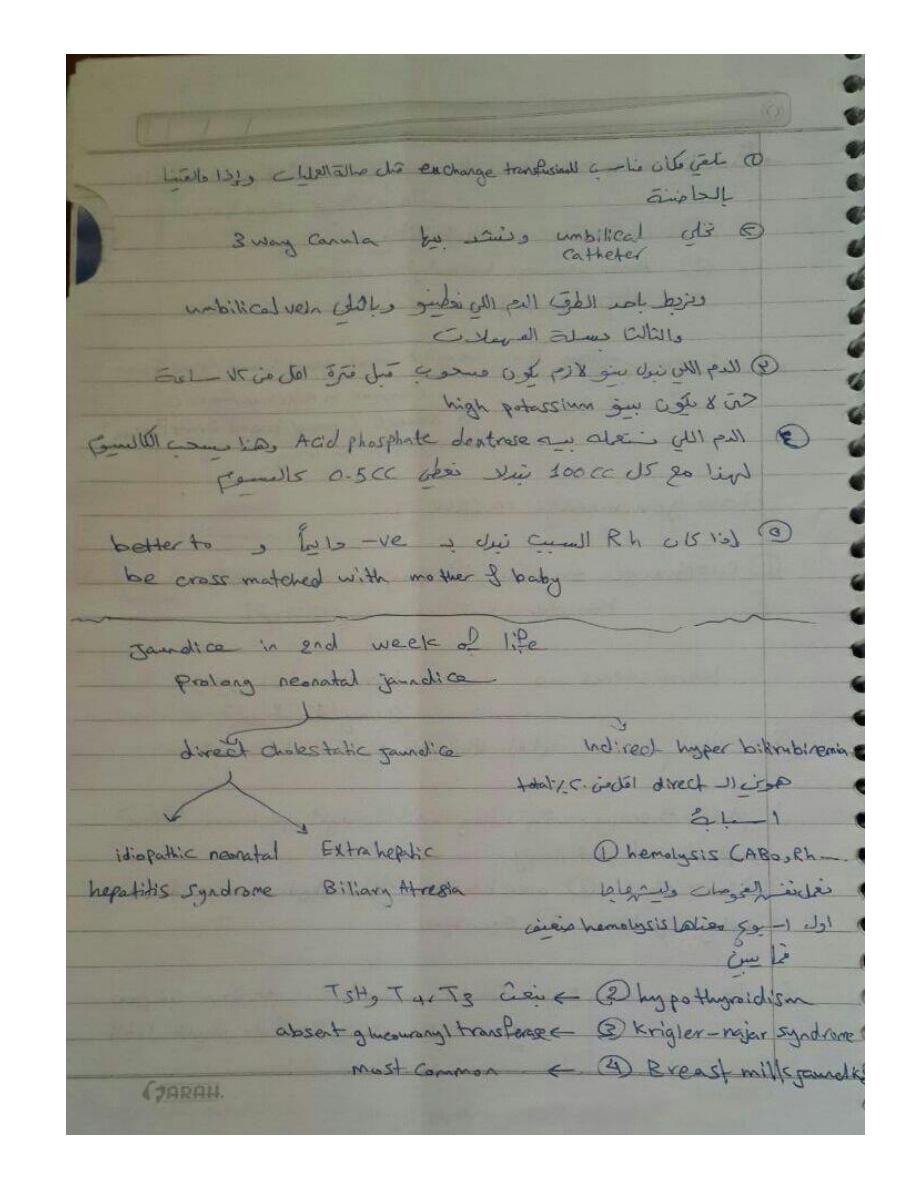 ① نلقي مكان مناسب لل exchange transfusion مثل صالة العمليات وإذا مالقينا
بالحاضنة
② نخلي umbilical catheter ونشد بيها 3 way canula
ونربط باحد الطرق الدم اللي نطينو وبالثاني umbilical vein
والثالث بسلة المهملات
③ الدم اللي نبدل بينو لازم يكون مسحوب قبل فترة اقل من ٧٢ ساعة
حتى لا يكون بيو high potassium
④ الدم اللي نستعمله بيه Acid phosphate dextrose وهذا يسحب الكالسيوم
لهذا مع كل 100 cc تبديل نعطي 0.5 cc كالسيوم
⑤ إذا كان Rh السبب نبدل بـ -ve دائماً و better to
be cross matched with mother & baby
Jaundice in 2nd week of life
Prolong neonatal jaundice
direct cholestatic jaundice
Indirect hyper bilirubinemia
هوني الـ direct اقل من ٢٠٪ total
اسبابه
idiopathic neonatal
hepatitis syndrome
Extrahepatic
Biliary Atresia
① hemolysis (ABO, Rh
نعمل نفس الفحوصات وليش ماجا
اول اسبوع معناها hemolysis ضعيف
فما يبين
② hypothyroidism ← نبعث TSH, T4, T3
③ Krigler-najar syndrome ← absent glucouranyl transferase
④ Breast milk jaundice ← most common
SARAH.